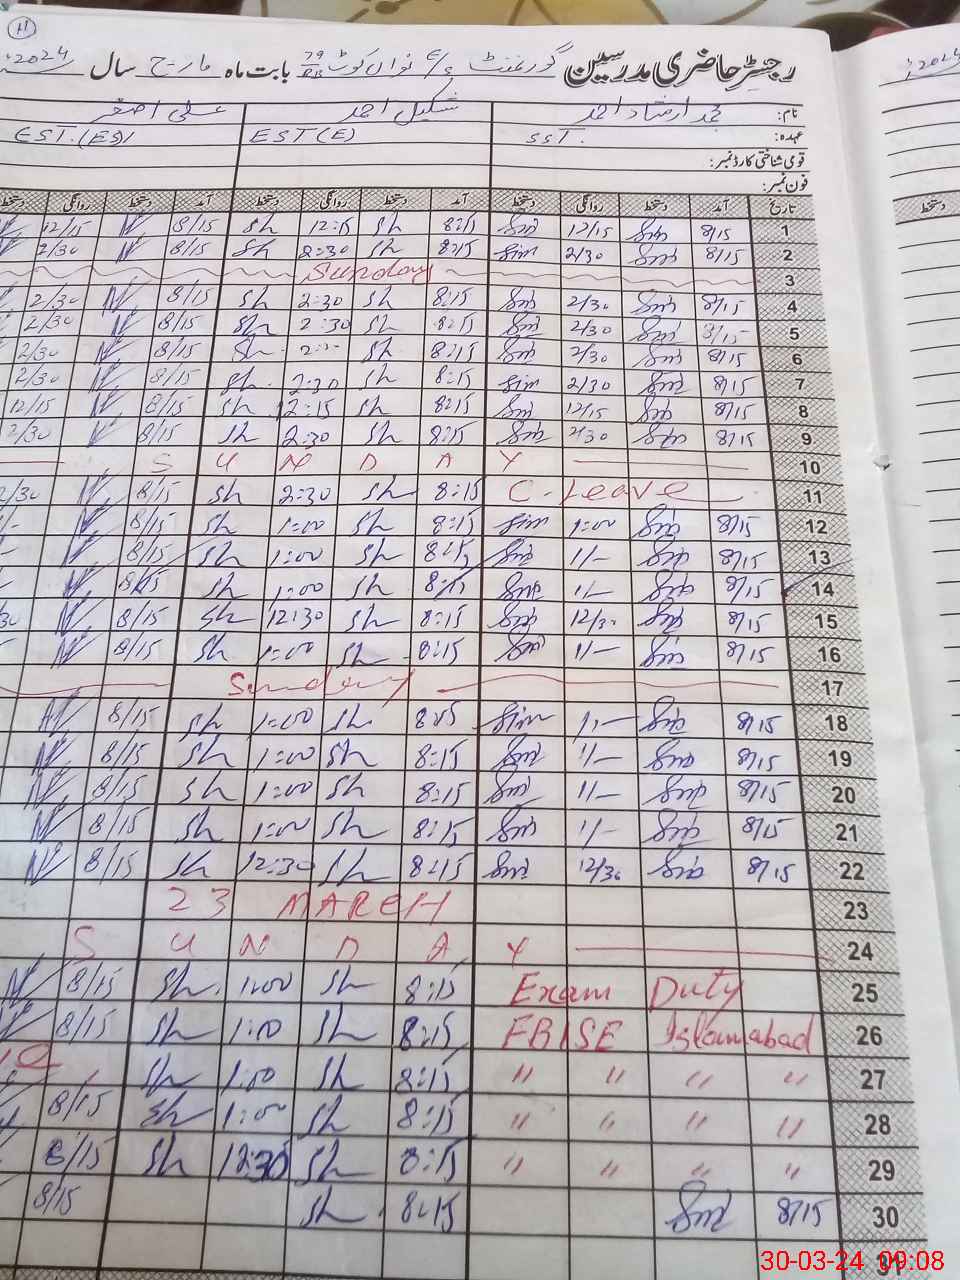 11
رجسٹر حاضری مدرسین گورنمنٹ نواں کوٹ بابت ماہ مارچ سال 2024
نام: محمد ارشاد احمد شکیل احمد علی اصغر
عہدہ: SST. EST (E) EST. (ES)
قومی شناختی کارڈ نمبر:
فون نمبر:
تاریخ آمد دستخط روانگی دستخط آمد دستخط روانگی دستخط آمد دستخط روانگی دستخط
1 8/15 Sm 12/15 Sm 8:15 Sh 12:15 Sh 8/15 12/15
2 8/15 Sm 2/30 Sim 8:15 Sh 2:30 Sh 8/15 2/30
3 Sunday
4 8/15 Sm 2/30 Sm 8:15 Sh 2:30 Sh 8/15 2/30
5 8/15 Sm 2/30 Sm 8:15 Sh 2:30 Sh 8/15 2/30
6 8/15 Sm 2/30 Sm 8:15 Sh Sh 8/15 2/30
7 8/15 Sm 2/30 Sim 8:15 Sh 2:30 Sh 8/15 2/30
8 8/15 Sm 12/15 Sm 8:15 Sh 12:15 Sh 8/15 12/15
9 8/15 Sm 2/30 Sm 8:15 Sh 2:30 Sh 8/15 2/30
10 SUNDAY
11 C. Leave 8:15 Sh 2:30 Sh 8/15 2/30
12 8/15 Sm 1:00 Sim 8:15 Sh 1:00 Sh 8/15
13 8/15 Sm 1/- Sm 8:15 Sh 1:00 Sh 8/15
14 8/15 Sm 1/- Sm 8:15 Sh 1:00 Sh 8/15
15 8/15 Sm 12/30 Sm 8:15 Sh 12:30 Sh 8/15
16 8/15 Sm 1/- Sm 8:15 Sh 1:00 Sh 8/15
17 Sunday
18 8/15 Sm 1/- Sim 8:15 Sh 1:00 Sh 8/15
19 8/15 Sm 1/- Sm 8:15 Sh 1:00 Sh 8/15
20 8/15 Sm 1/- Sm 8:15 Sh 1:00 Sh 8/15
21 8/15 Sm 1/- Sm 8:15 Sh 1:00 Sh 8/15
22 8/15 Sm 12/30 Sm 8:15 Sh 12:30 Sh 8/15
23 23 MARCH
24 SUNDAY
25 Exam Duty 8:15 Sh 1:00 Sh 8/15
26 FBISE Islamabad 8:15 Sh 1:00 Sh 8/15
27 " " " " 8:15 Sh 1:00 Sh
28 " " " " 8:15 Sh 1:00 Sh 8/15
29 " " " " 8:15 Sh 12:30 Sh 8/15
30 8/15 Sm 8:15 Sh 8/15
31
2024
دستخط
30-03-24 09:08